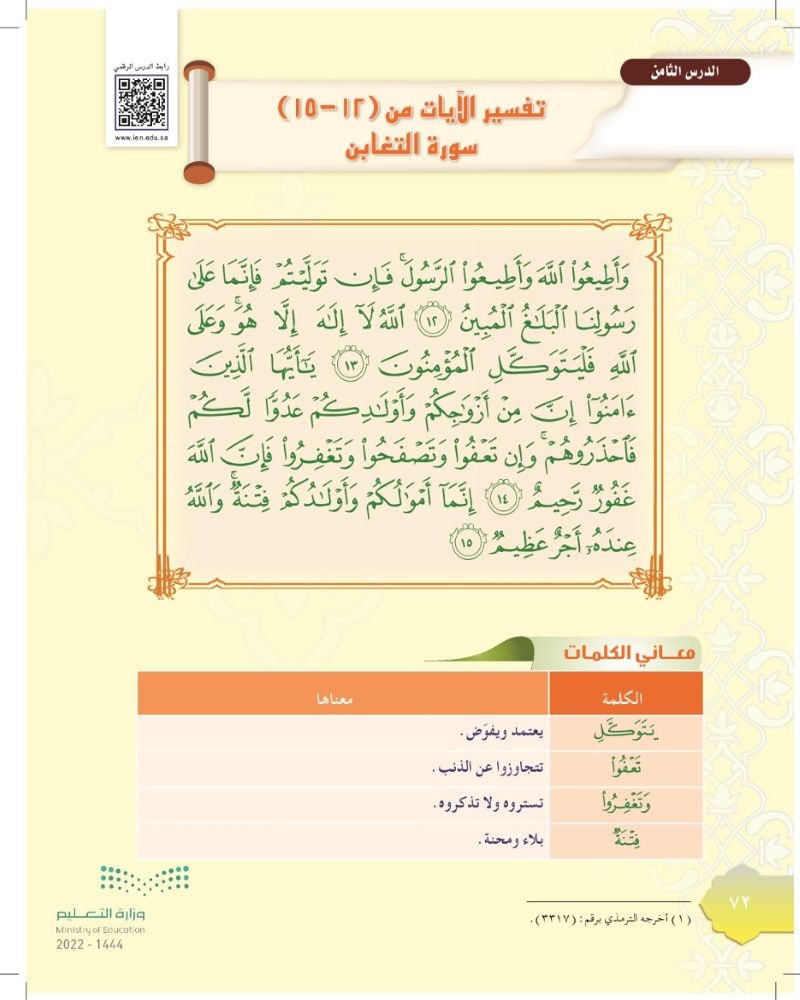 رابط الدرس الرقمي
www.ien.edu.sa
الدرس الثامن
تفسير الآيات من (١٢-١٥)
سورة التغابن
وَأَطِيعُوا۟ ٱللَّهَ وَأَطِيعُوا۟ ٱلرَّسُولَ ۚ فَإِن تَوَلَّيْتُمْ فَإِنَّمَا عَلَىٰ
رَسُولِنَا ٱلْبَلَٰغُ ٱلْمُبِينُ ١٢ ٱللَّهُ لَآ إِلَٰهَ إِلَّا هُوَ ۚ وَعَلَى
ٱللَّهِ فَلْيَتَوَكَّلِ ٱلْمُؤْمِنُونَ ١٣ يَٰٓأَيُّهَا ٱلَّذِينَ
ءَامَنُوٓا۟ إِنَّ مِنْ أَزْوَٰجِكُمْ وَأَوْلَٰدِكُمْ عَدُوًّا لَّكُمْ
فَٱحْذَرُوهُمْ ۚ وَإِن تَعْفُوا۟ وَتَصْفَحُوا۟ وَتَغْفِرُوا۟ فَإِنَّ ٱللَّهَ
غَفُورٌ رَّحِيمٌ ١٤ إِنَّمَآ أَمْوَٰلُكُمْ وَأَوْلَٰدُكُمْ فِتْنَةٌ ۚ وَٱللَّهُ
عِندَهُۥٓ أَجْرٌ عَظِيمٌ ١٥
معــاني الكلمات
الكلمة معناها
يَتَوَكَّلِ يعتمد ويفوّض.
تَعْفُوا۟ تتجاوزوا عن الذنب.
وَتَغْفِرُوا۟ تستروه ولا تذكروه.
فِتْنَةٌ بلاء ومحنة.
(١) أخرجه الترمذي برقم: (٣٣١٧).
٧٢
وزارة التعـليم
Ministry of Education
2022 - 1444